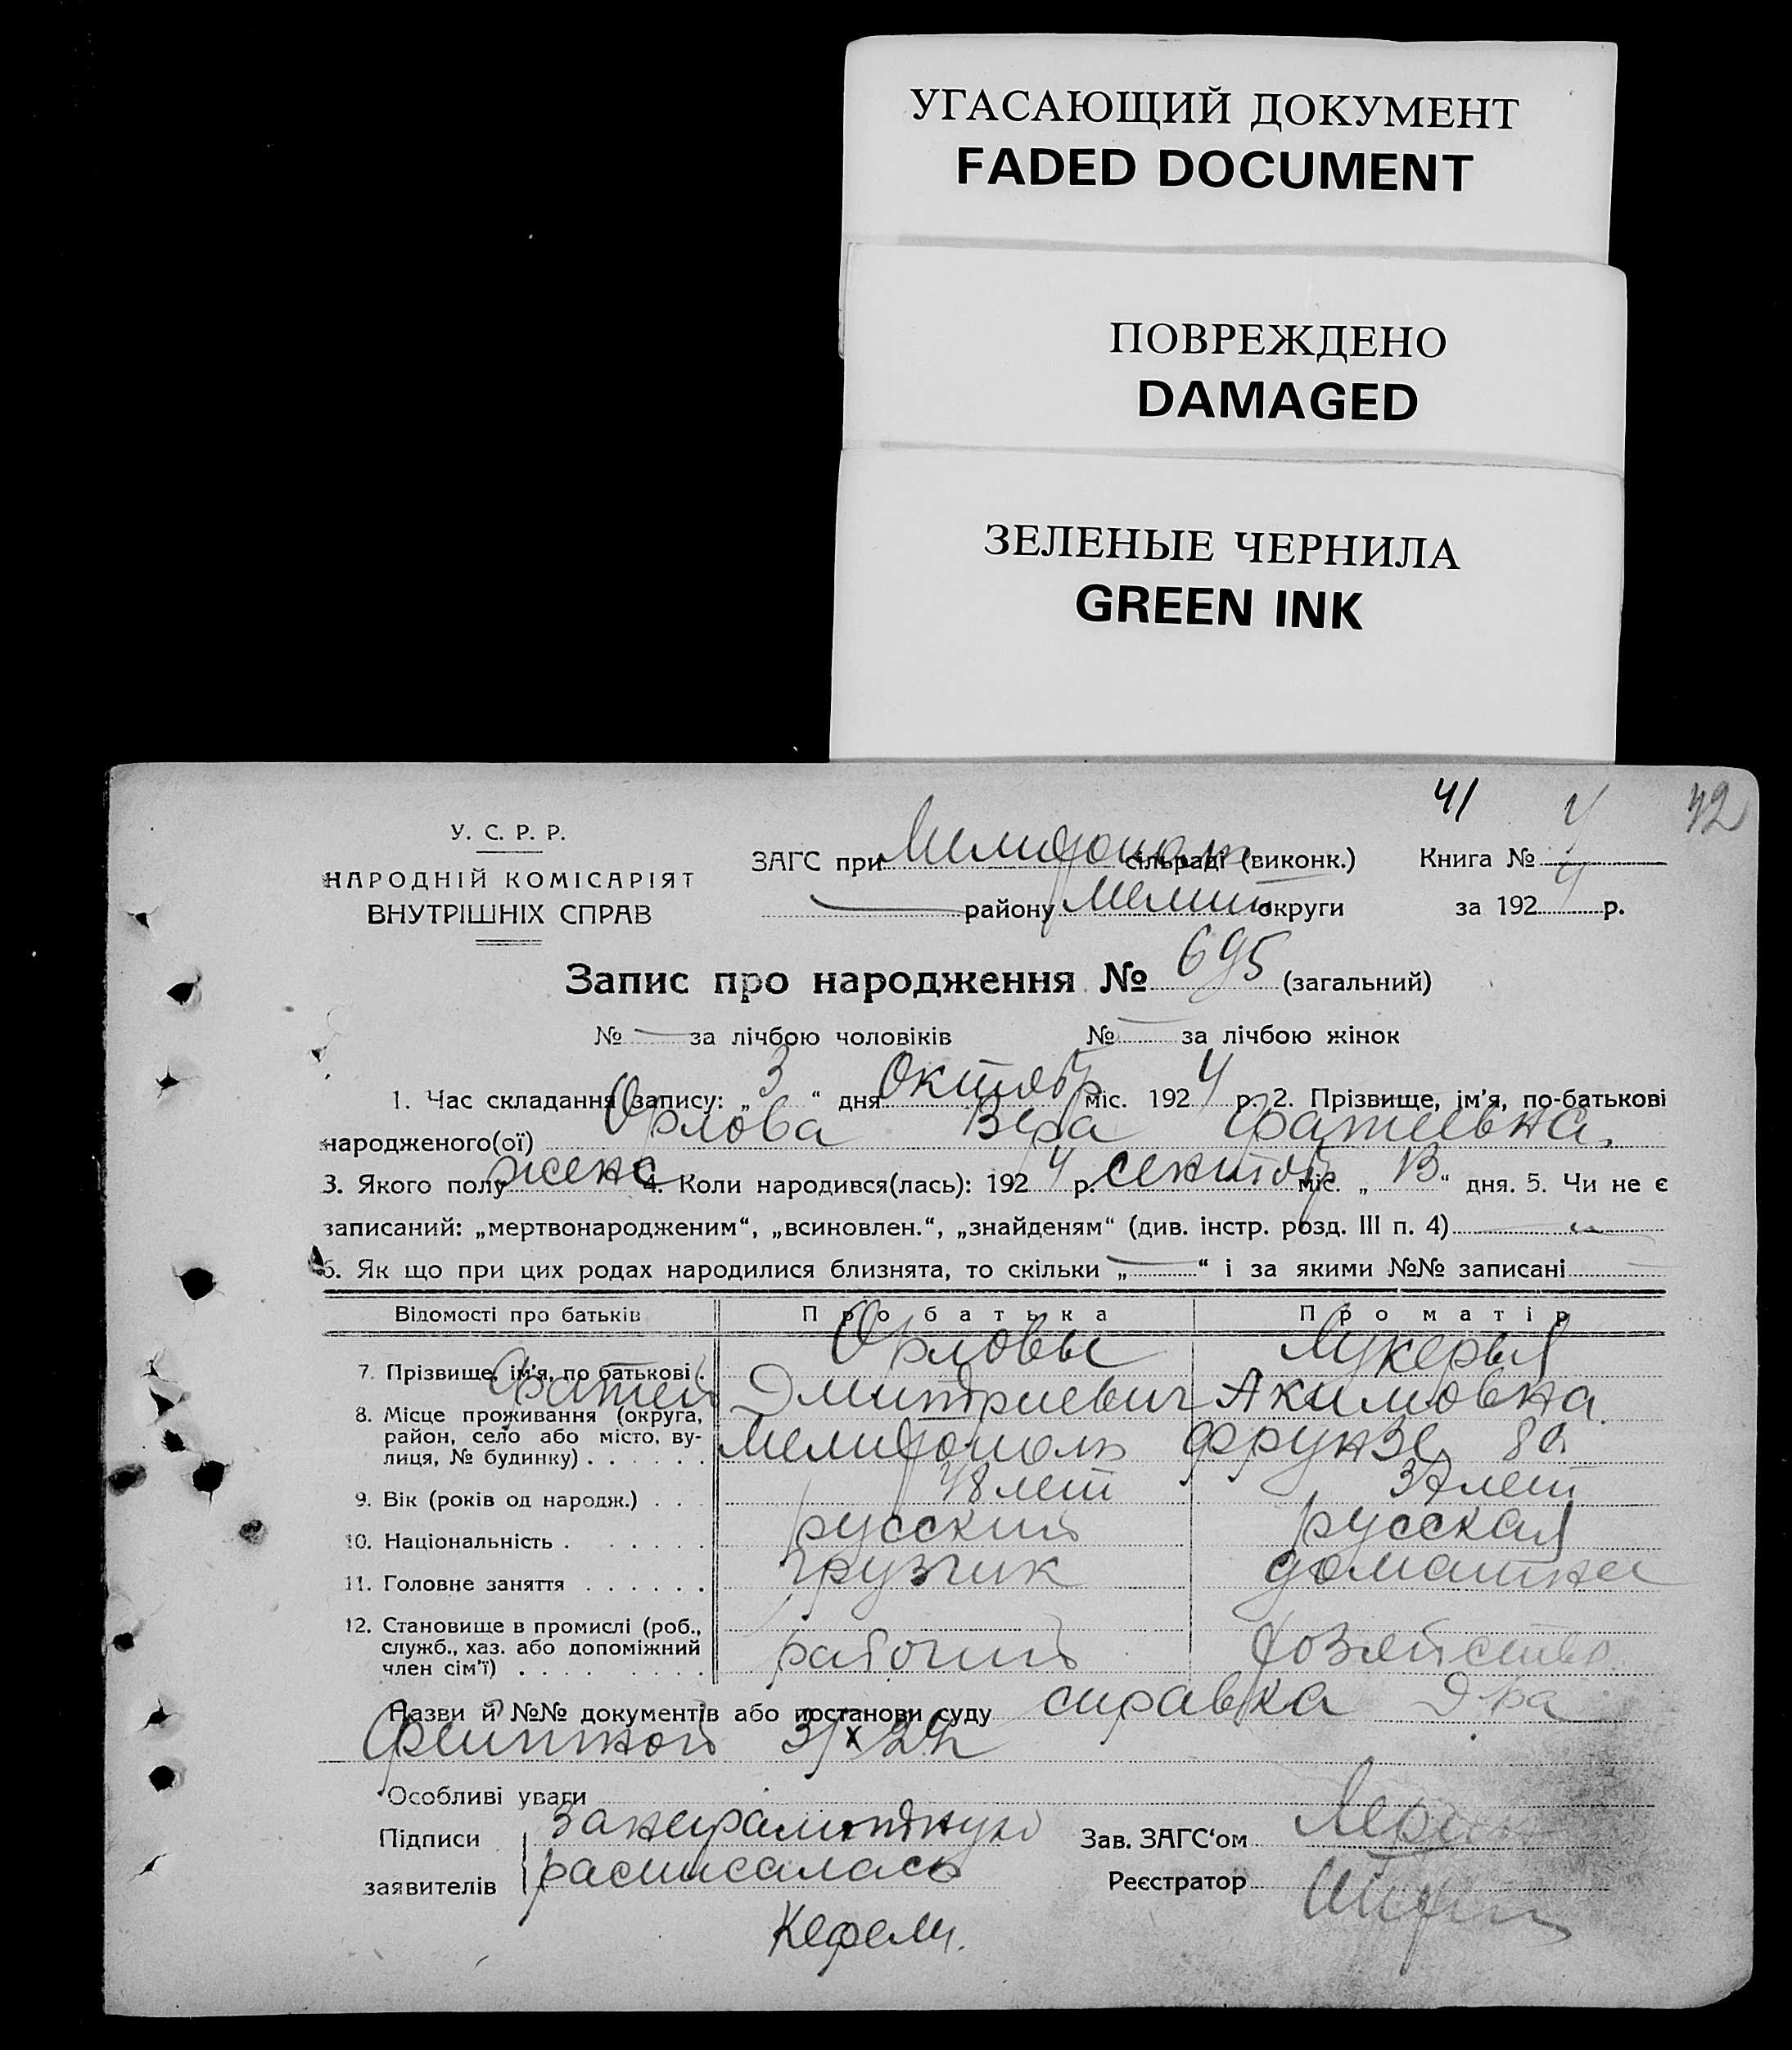 УГАСАЮЩИЙ ДОКУМЕНТ
FADED DOCUMENT
ПОВРЕЖДЕНО
DAMAGED
ЗЕЛЕНЫЕ ЧЕРНИЛА
GREEN INK
41 42
У. С. Р. Р.
НАРОДНІЙ КОМІСАРІЯТ
ВНУТРІШНІХ СПРАВ
ЗАГС при Мелитополь сільраді (виконк.) Книга № 4
району Мелит округи за 1924 р.
Запис про народження № 695 (загальний)
№ за лічбою чоловіків № за лічбою жінок
1. Час складання запису: „3“ дня Октябр міс. 1924 р. 2. Прізвище, ім'я, по-батькові
народженого(ої) Орлова Вера Фатеевна.
3. Якого полу женс 4. Коли народився(лась): 1924 р. сентяб міс. „13“ дня. 5. Чи не є
записаний: „мертвонародженим“, „всиновлен.“, „знайденям“ (див. інстр. розд. III п. 4)
6. Як що при цих родах народилися близнята, то скільки „ “ і за якими №№ записані
Відомості про батьків Про батька Про матір
7. Прізвище, ім'я, по батькові . Орловы Лукерья
Фатей Дмитриевич Акимовна
8. Місце проживання (округа,
район, село або місто, ву-
лиця, № будинку) . . . . . . Мелитополь Фрунзе 80
9. Вік (років од народж.) . . . 48 лет 37 лет
10. Національність . . . . . . русский русская
11. Головне заняття . . . . . . грузчик домашнее
12. Становище в промислі (роб.,
служб., хаз. або допоміжний
член сім'ї) . . . . . . . . рабочий хозяйство
Назви й №№ документів або постанови суду справка Д-ра
3/X 24
Особливі уваги
Підписи За неграмотную
заявителів расписалась
Кефели.
Зав. ЗАГС'ом
Реєстратор